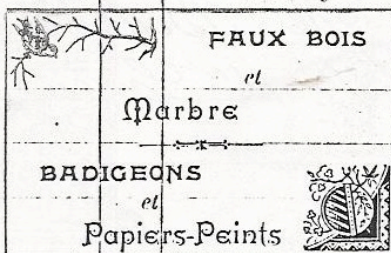 FAUX BOIS
et
Marbre
BADIGEONS
et
Papiers-Peints